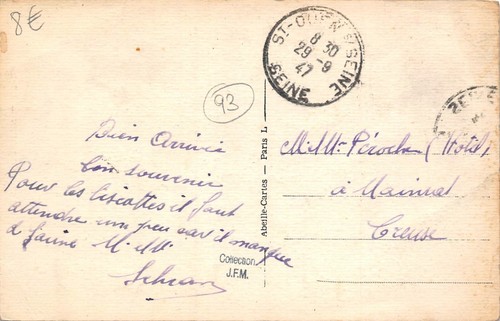 8€
ST-OUEN S/SEINE
8 30
29 -9
47
SEINE
93
Bien Arrivée
bon souvenir
Pour les biscottes il faut
attendre un peu car il manque
d farine M. Mme
Abeille-Cartes — Paris
M. Mme Péroche (Hotel)
à Mainsat
Creuse
Collection
J.F.M.